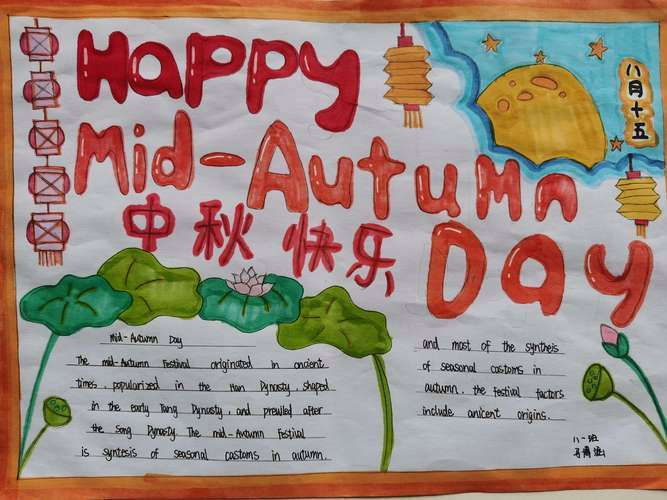 Happy
Mid-Autumn
中秋 快乐
Day
八月十五
Mid-Autumn Day
The mid-Autumn Festival originated in ancient
times, popularized in the Han Dynasty, shaped
in the early Tang Dynasty, and prewlled after
the Song Dynasty. The mid-Autumn Festival
is syntesis of seasonal costoms in autumn.
and most of the synthesis
of seasonal costoms in
autumn. the festival factors
include anicent origins.
八一班